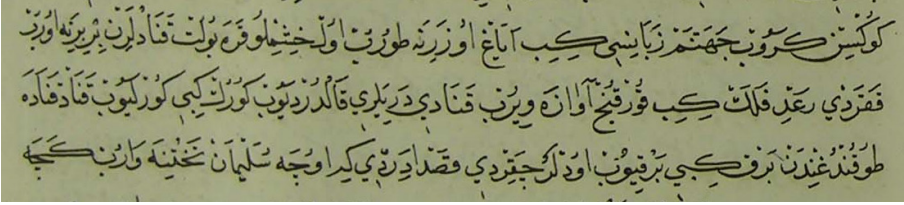 كوكسن كروب جهنم زباينسي كبب اياغ اوزرنه طوروب اول خشملو قره بولت قنادلرن بربرنه اوروب
فقردي رعد فلك كبب قورقنج آوازه ويرب قنادي دپريلري قالدردیوب كورلك كبي كورليوب قناد قناده
طوقندغيندن برق كبي برقيوب اودلر چقردي قصد ايدردي كيم اوچه سليمان تختينه وارب كچه